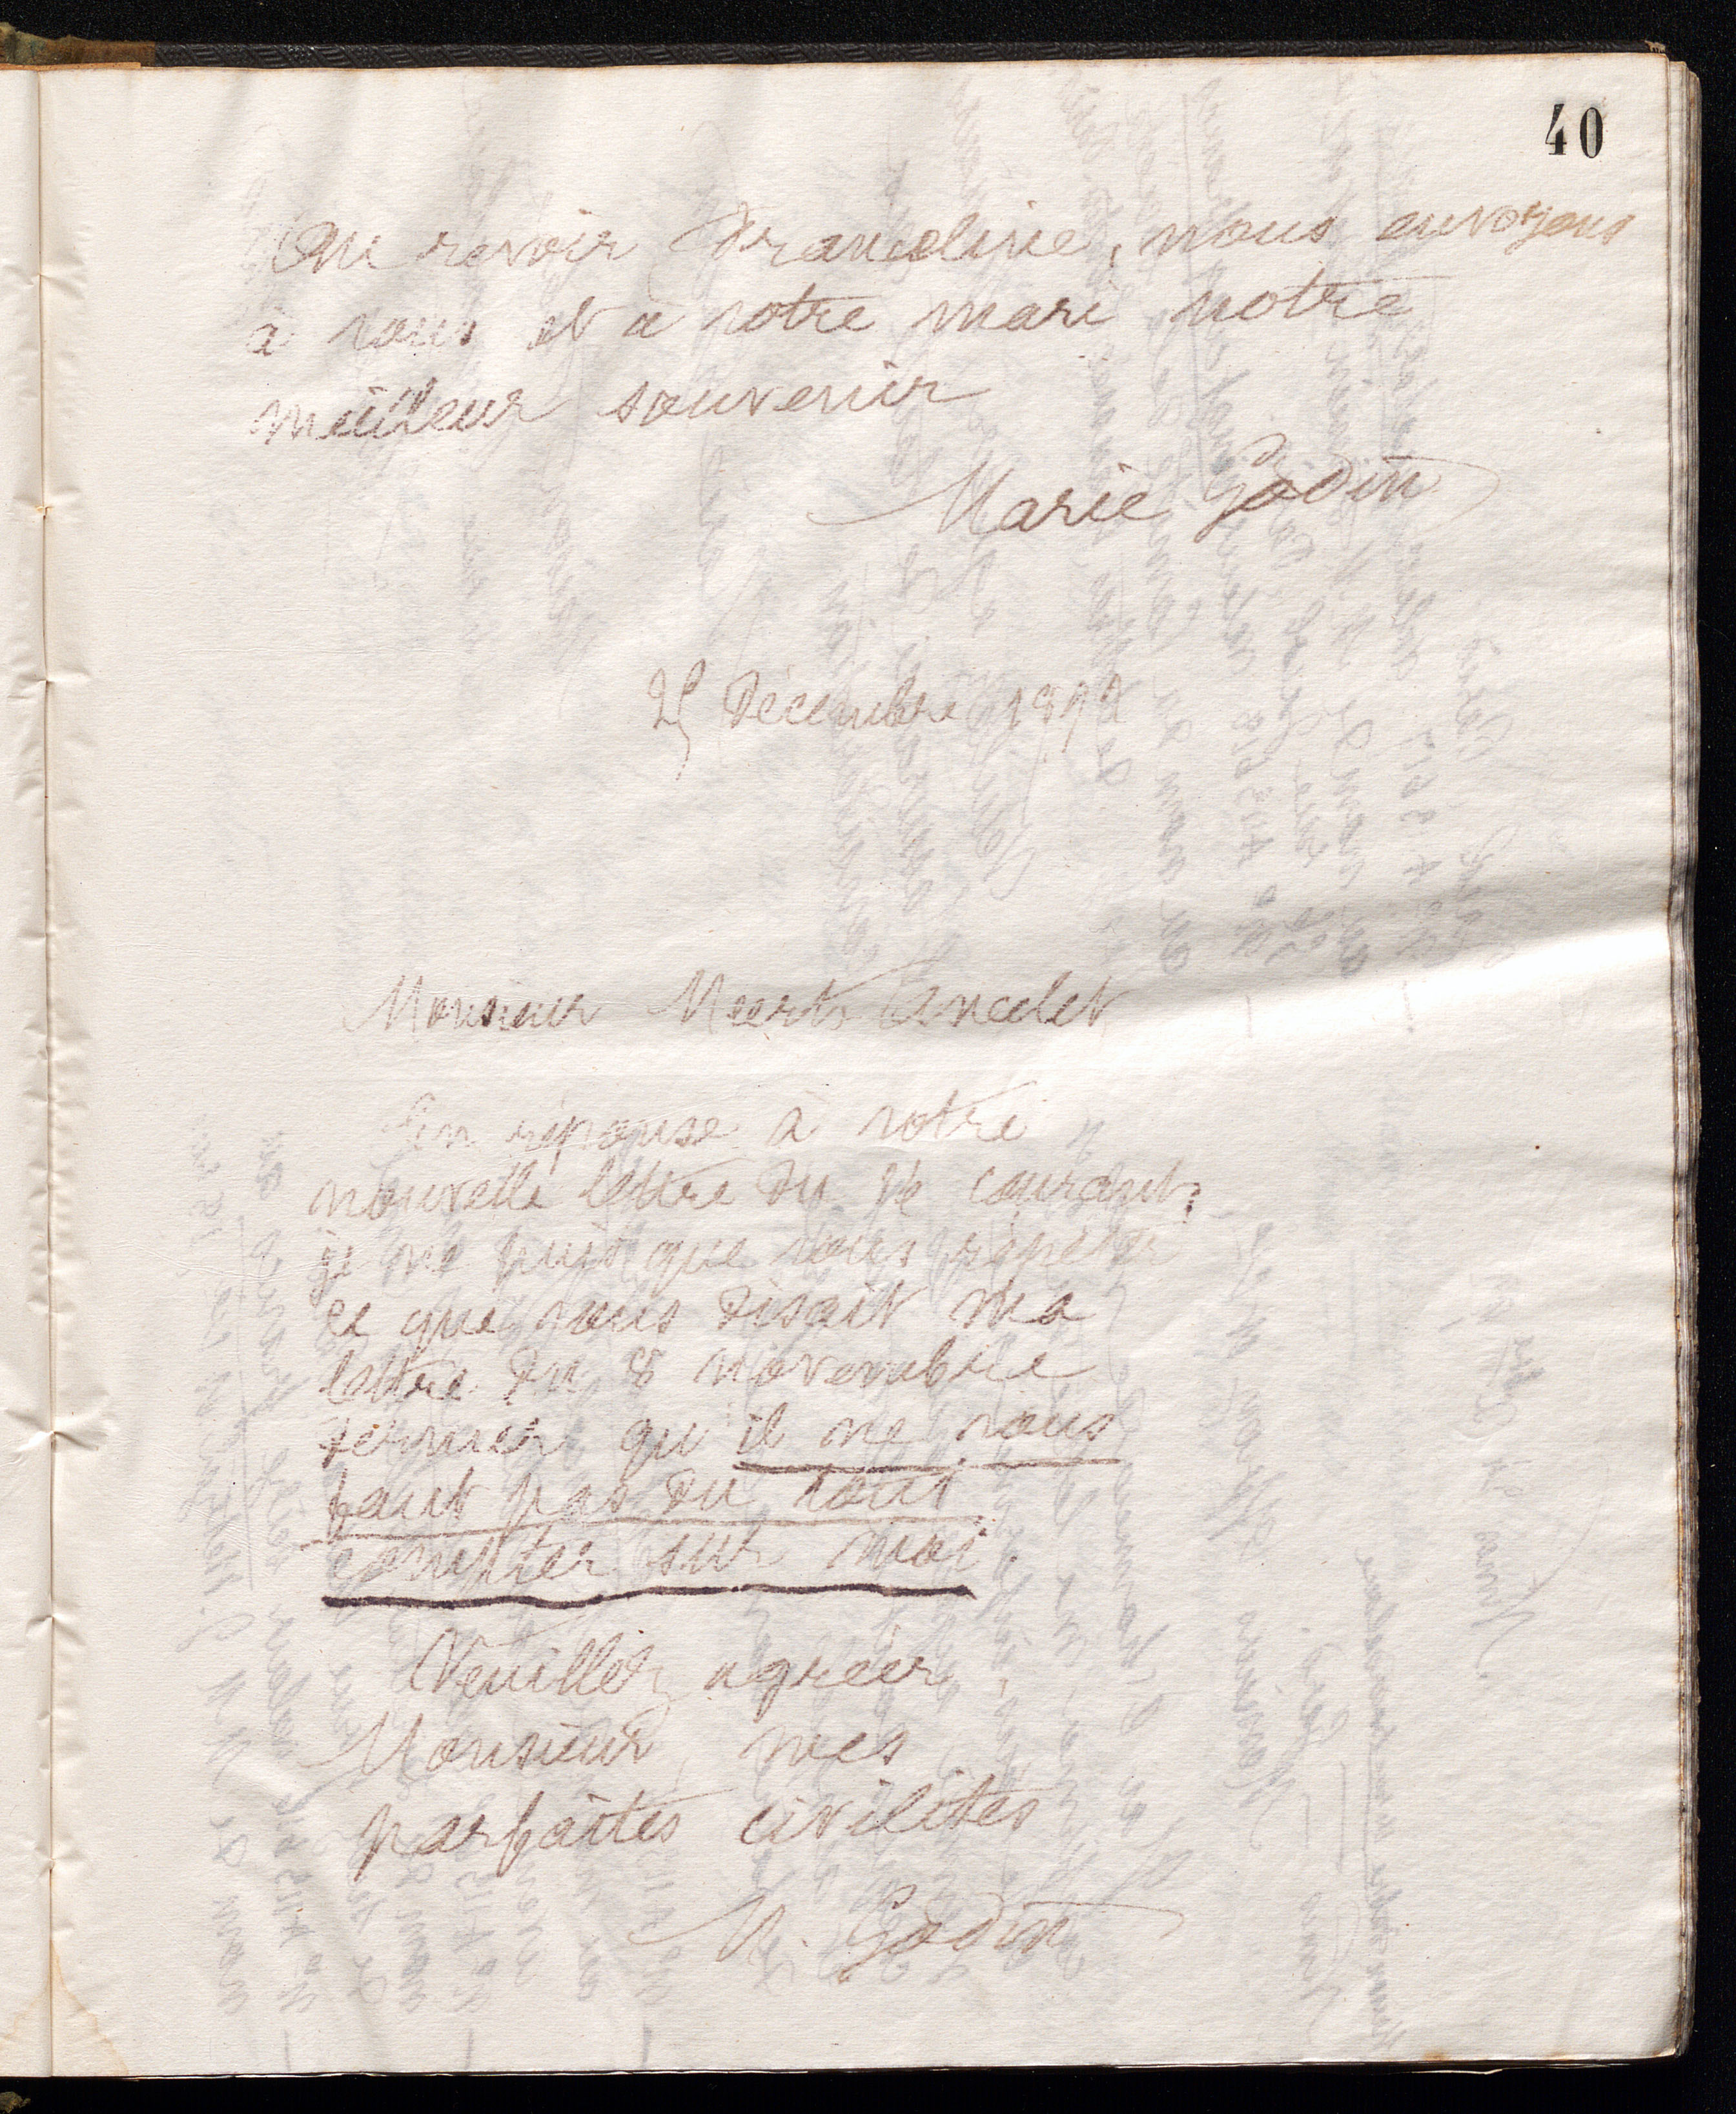 40
Au revoir Franceline, nous envoyons
à vous et a votre mari notre
meilleur souvenir
Marie Godin
Décembre 1892
Monsieur Meert Ancelet
En réponse à votre
nouvelle lettre du courant,
je ne puis que vous répéter
ce que vous disait ma
lettre du 8 novembre
dernier qu'il ne vous
faut pas du tout
compter sur moi.
Veuillez agréer,
Monsieur, mes
parfaites civilités
M. Godin